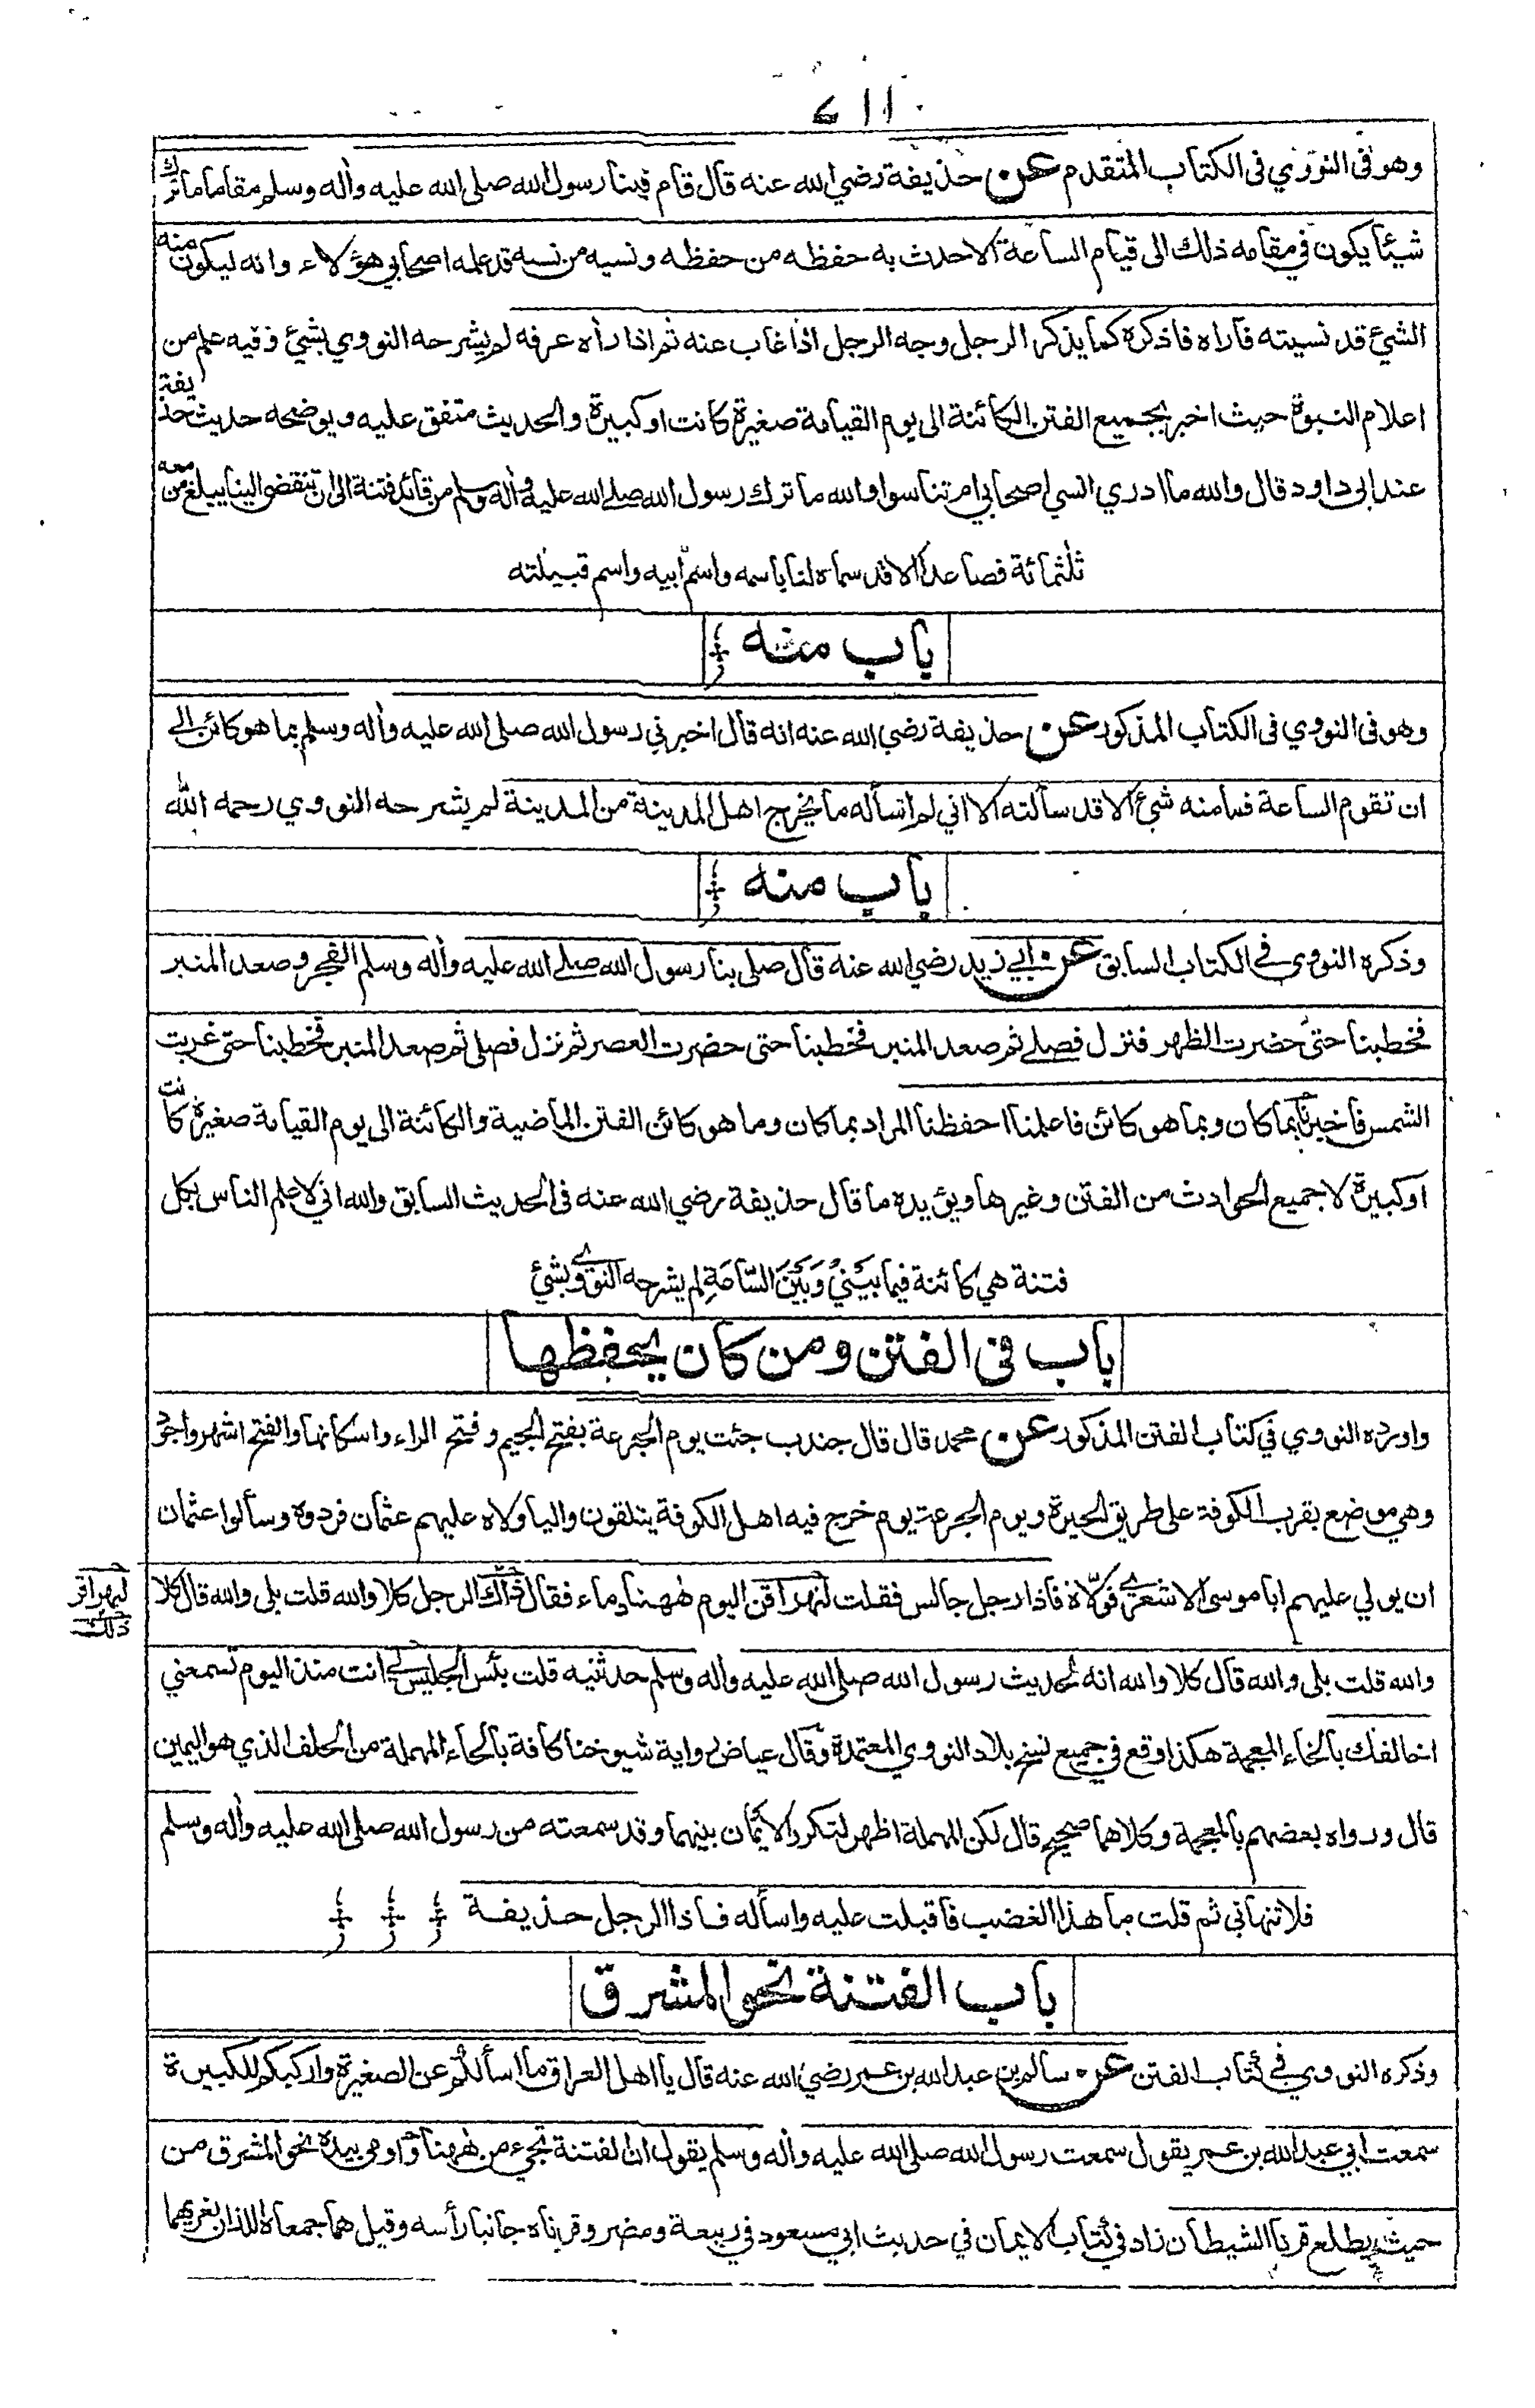 ٧١١
وهو في النووي في الكتاب المتقدم عن حذيفة رضي الله عنه قال قام فينا رسول الله صلى الله عليه واٰله وسلم مقاما ما ترك
شيئا يكون في مقامه ذلك الى قيام الساعة الا حدث به حفظه من حفظه ونسيه من نسيه قد علمه اصحابي هؤلاء وانه ليكون منه
الشئ قد نسيته فاراه فاذكره كما يذكر الرجل وجه الرجل اذا غاب عنه ثم اذا راٰه عرفه لم يشرحه النووي بشئ وفيه علم من
اعلام النبوة حيث اخبر بجميع الفتن الكائنة الى يوم القيامة صغيرة كانت او كبيرة والحديث متفق عليه ويوضحه حديث حذيفة
عند ابي داود قال والله ما ادري انسي اصحابي ام تناسوا والله ما ترك رسول الله صلى الله عليه واٰله وسلم من قائد فتنة الى ان تنقضي الدنيا يبلغ من معه
ثلثمائة فصاعدا الا قد سماه لنا باسمه واسم ابيه واسم قبيلته
باب منه
وهو في النووي في الكتاب المذكور عن حذيفة رضي الله عنه انه قال اخبرني رسول الله صلى الله عليه واٰله وسلم بما هو كائن الى
ان تقوم الساعة فما منه شئ الا قد سألته الا اني لم اسأله ما يخرج اهل المدينة من المدينة لم يشرحه النووي رحمه الله
باب منه
وذكره النووي في الكتاب السابق عن ابي زيد رضي الله عنه قال صلى بنا رسول الله صلى الله عليه واٰله وسلم الفجر وصعد المنبر
فخطبنا حتى حضرت الظهر فنزل فصلى ثم صعد المنبر فخطبنا حتى حضرت العصر ثم نزل فصلى ثم صعد المنبر فخطبنا حتى غربت
الشمس فاخبرنا بما كان وبما هو كائن فاعلمنا احفظنا المراد بما كان وما هو كائن الفتن الماضية والكائنة الى يوم القيامة صغيرة كانت
او كبيرة لا جميع الحوادث من الفتن وغيرها ويؤيده ما قال حذيفة رضي الله عنه في الحديث السابق والله اني لاعلم الناس بكل
فتنة هي كائنة فيما بَيْنِيْ وَبَيْنَ السَّاعَةِ لم يشرحه النووي بشئ
باب في الفتن ومن كان يحفظها
واورده النووي في كتاب الفتن المذكور عن محمد قال قال جندب جئت يوم الجرعة بفتح الجيم وفتح الراء واسكانها والفتح اشهر واجود
وهي موضع بقرب الكوفة على طريق الحيرة ويوم الجرعة يوم خرج فيه اهل الكوفة يتلقون واليا ولاه عليهم عثمان فردوه وسألوا عثمان
ان يولي عليهم ابا موسى الاشعري فولّاه فاذا رجل جالس فقلت لنهراقن اليوم هٰهنا دماء فقال ذاك الرجل كلا والله قلت بلى والله قال كلا
ليهراقن
ذلك
والله قلت بلى والله قال كلا والله انه لحديث رسول الله صلى الله عليه واٰله وسلم حدثنيه قلت بئس الجليس لي انت منذ اليوم تسمعني
اخالفك بالخاء المعجمة هكذا وقع في جميع نسخ بلاد النووي المعتمدة وقال عياض رواية شيوخنا كافة بالحاء المهملة من الحلف الذي هو اليمين
قال ورواه بعضهم بالمعجمة وكلاهما صحيح قال لكن المهملة اظهر لتكرر الايمان بينهما وقد سمعته من رسول الله صلى الله عليه واٰله وسلم
فلا تنهاني ثم قلت ما هذا الغضب فاقبلت عليه واسأله فاذا الرجل حذيفة
باب الفتنة نحو المشرق
وذكره النووي في كتاب الفتن عن سالم بن عبد الله بن عمر رضي الله عنه قال يا اهل العراق ما اسألكم عن الصغيرة واركبكم للكبيرة
سمعت ابي عبد الله بن عمر يقول سمعت رسول الله صلى الله عليه واٰله وسلم يقول ان الفتنة تجيء من هٰهنا واومى بيده نحو المشرق من
حيث يطلع قرنا الشيطان زاد في كتاب الايمان في حديث ابي مسعود في ربيعة ومضر وقرناه جانبا رأسه وقيل هما جمعاه اللذان يغريهما